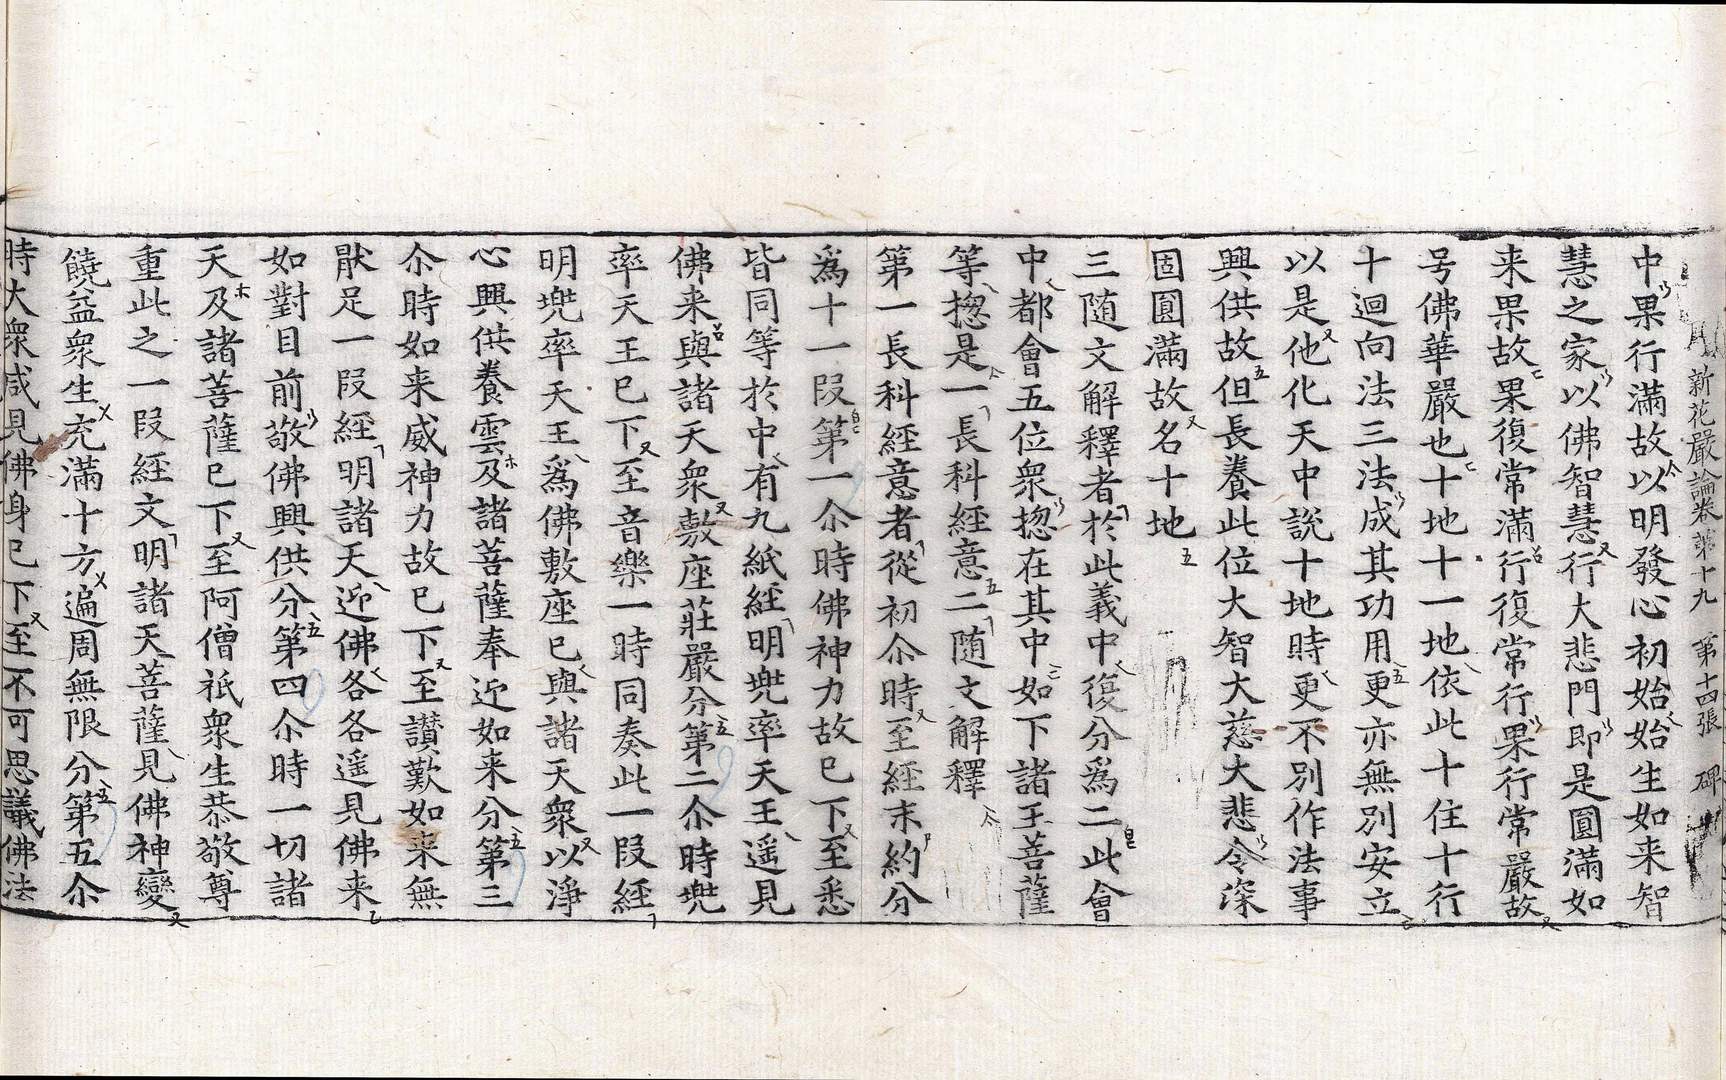 新花嚴論卷第十九　第十四張　碑
中果行滿故以明發心初始始生如来智
慧之家以佛智慧行大悲門即是圓滿如
来果故果復常滿行復常行果行常嚴故
号佛華嚴也十地十一地依此十住十行
十迴向法三法成其功用更亦無別安立
以是他化天中說十地時更不別作法事
興供故但長養此位大智大慈大悲令深
固圓滿故名十地
三随文解釋者於此義中復分爲二此會
中都會五位衆揔在其中如下諸王菩薩
等揔是一長科經意二随文解釋
第一長科經意者從初尒時至經末約分
爲十一段第一尒時佛神力故已下至悉
皆同等於中有九紙經明兜率天王遥見
佛来與諸天衆敷座莊嚴分第二尒時兜
率天王已下至音樂一時同奏此一段經
明兜率天王爲佛敷座已與諸天衆以淨
心興供養雲及諸菩薩奉近如来分第三
尒時如来威神力故已下至讃歎如来無
猒足一段經明諸天迎佛各各遥見佛来
如對目前敬佛興供分第四尒時一切諸
天及諸菩薩已下至阿僧祇衆生恭敬尊
重此之一段經文明諸天菩薩見佛神變
饒益衆生充滿十方遍周無限分第五尒
時大衆咸見佛身已下至不可思議佛法